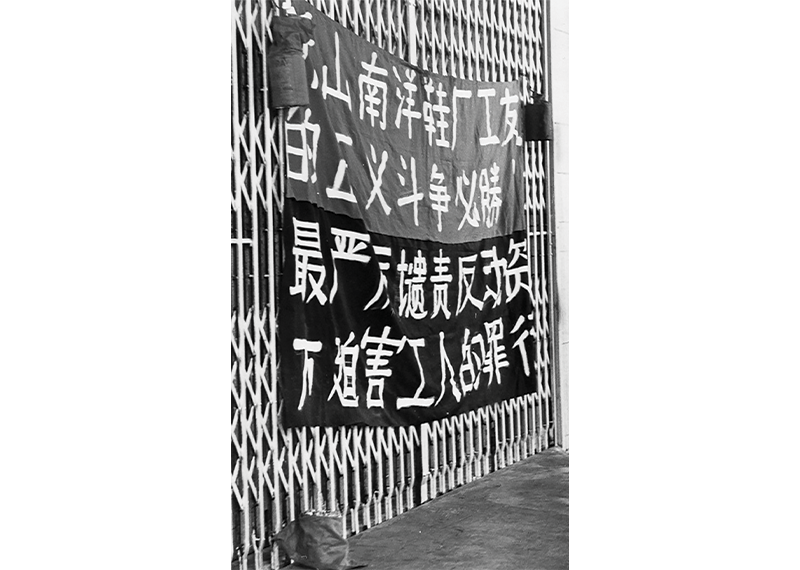 山南洋鞋厂工友
的正义斗争必勝！
最严厉谴责反动资
方迫害工人的罪行